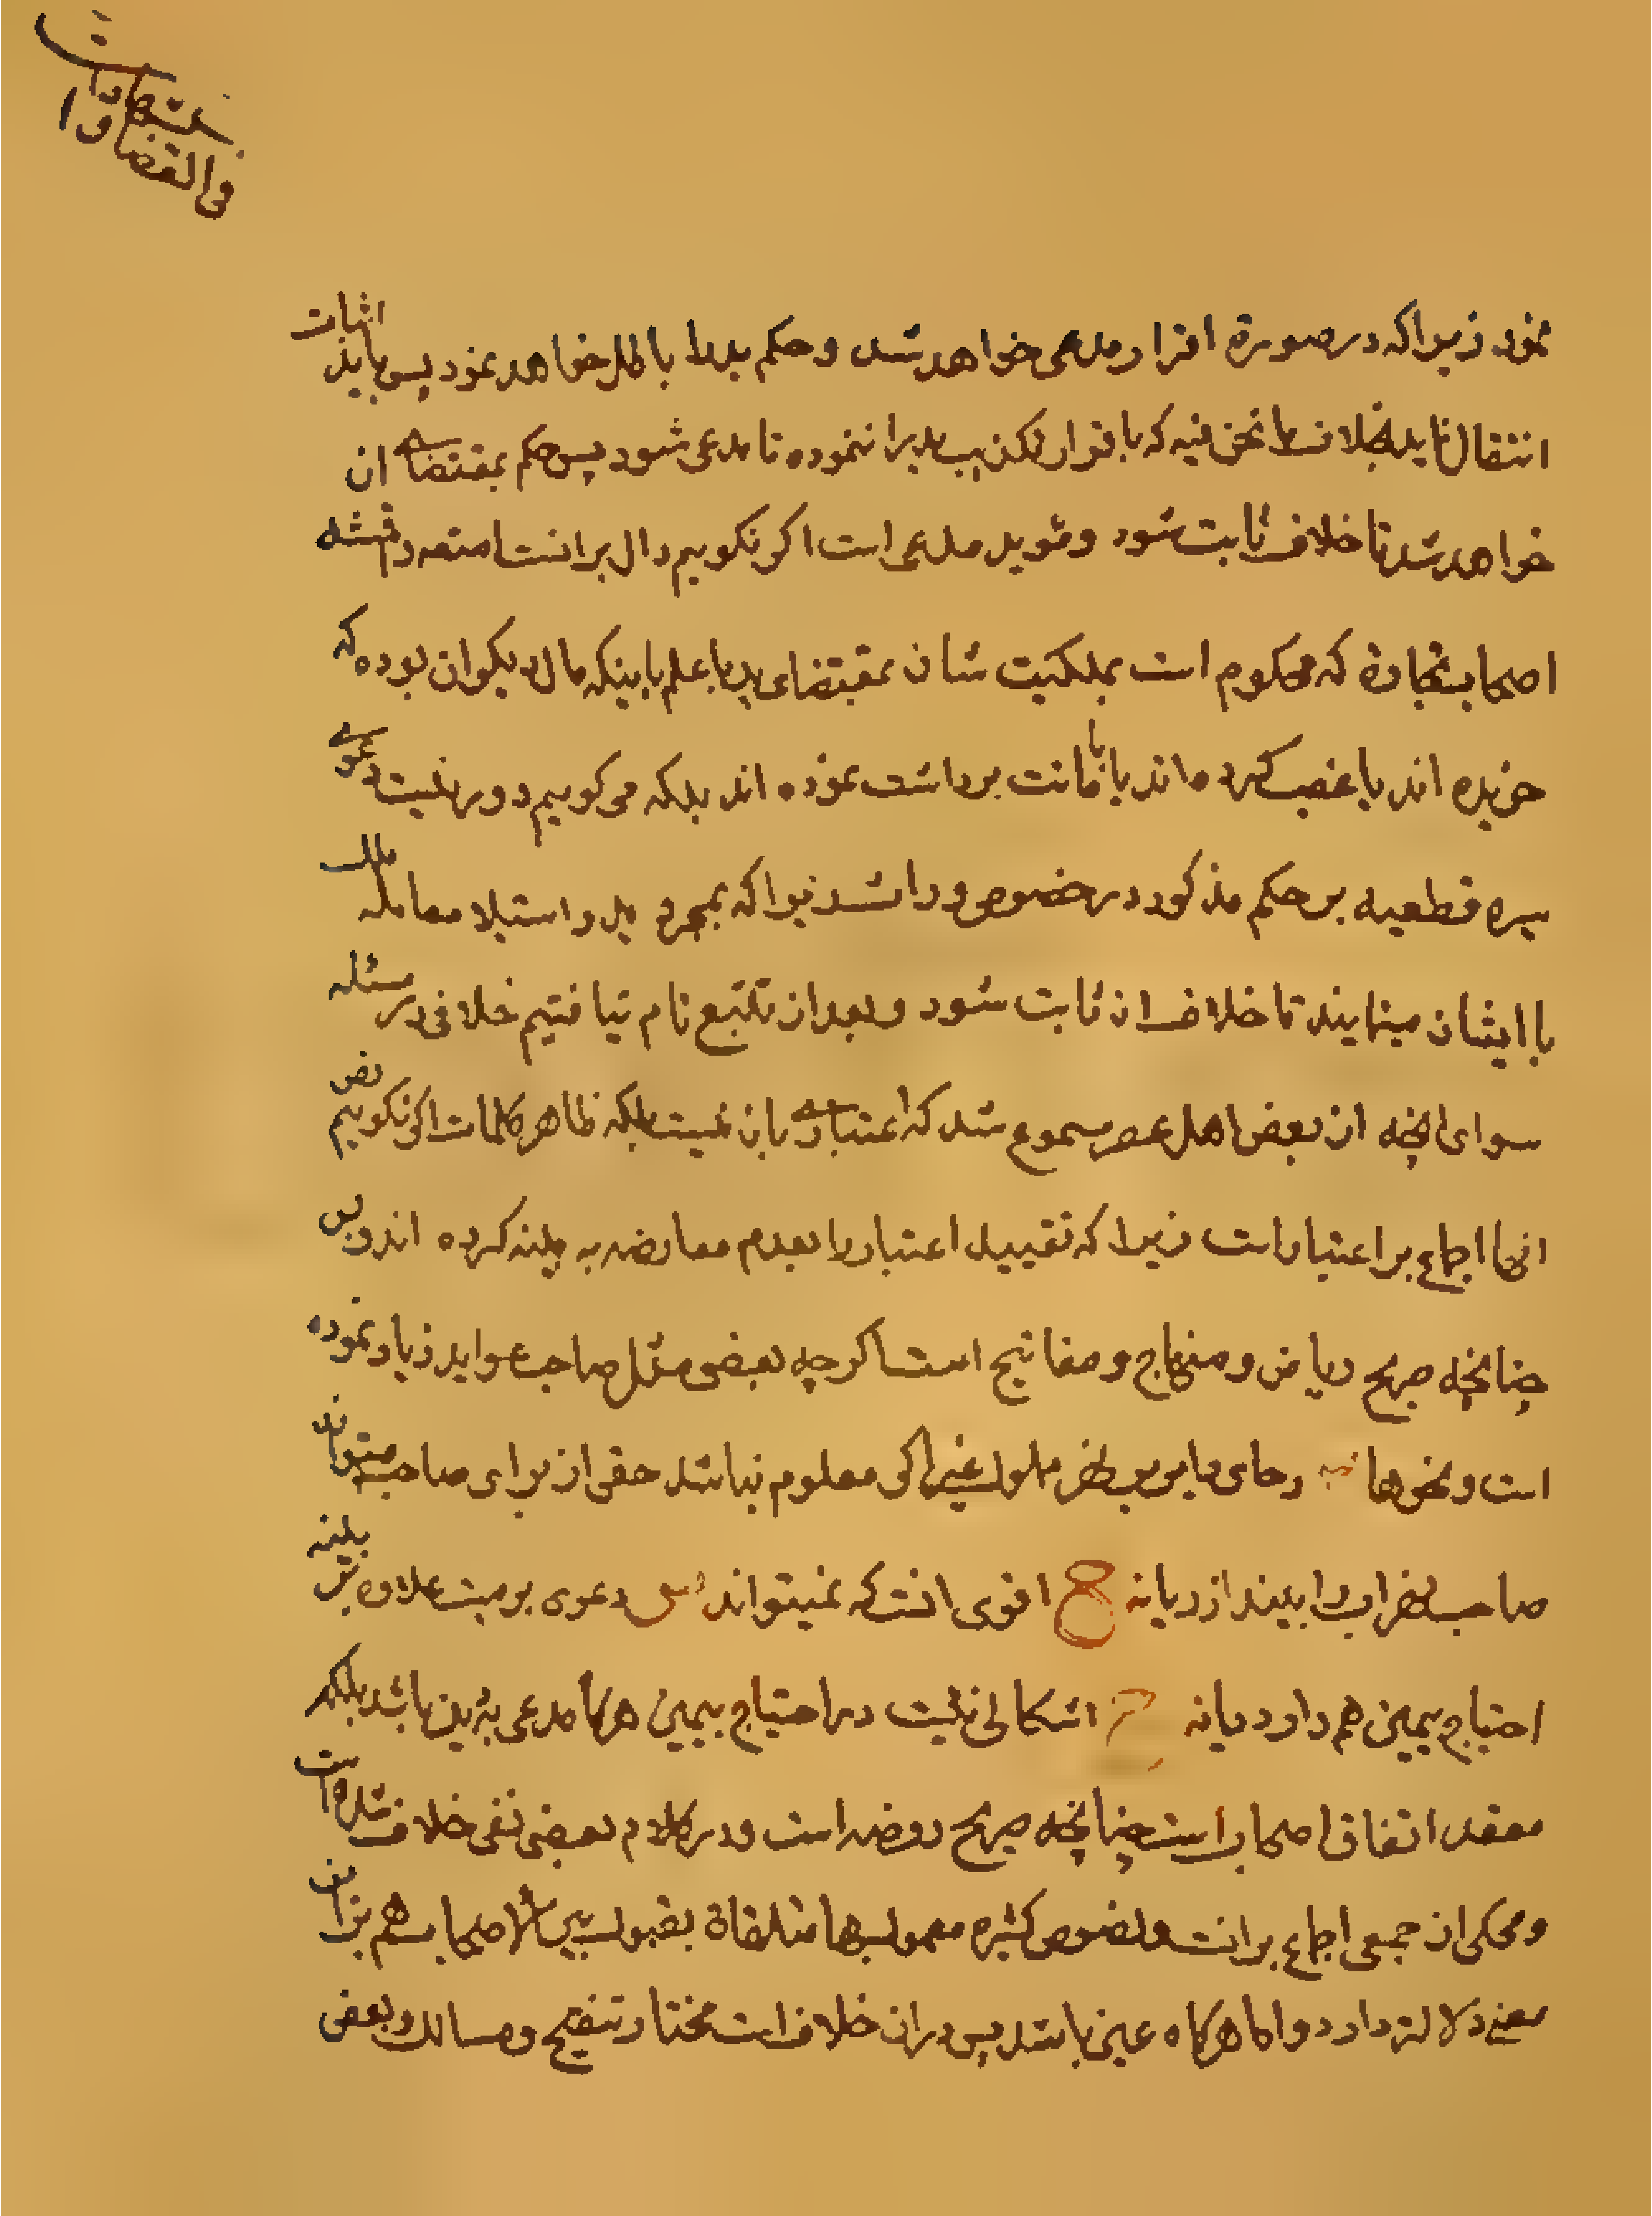 فی القضا و ا
لشهادات
نمود زیرا که در صورة اقرار مدعی خواهد شد و حکم بید را باطل خواهد نمود پس باید اثبات
انتقال نماید بخلاف ما نحن فیه که با قرار تکذیب ید را ننموده تا مدعی شود پس حکم بمقتضای ان
خواهد شد تا خلاف ثابت شود و مؤید مدعی است اکر نکوییم دال بر انست امتعه و اقمشه
اصحاب تجارة که محکوم است بملکیت شان بمقتضای ید با علم باینکه مال دیکران بوده که
خریده اند یا غصب کرده اند یا بامانت برداشت نموده اند بلکه می کوییم دور نیست دعوی
سیره قطعیه بر حکم مذکور در خصوص و زیرا که بمجرد ید و استیلا معامله ملک
با ایشان مینمایند تا خلاف ان ثابت شود و بعد از تتبع تام نیافتیم خلافی در مسئله
سوای انچه از بعض اهل عصر مسموع شد که اعتباری بان نیست بلکه ظاهر کلمات اکر نکوییم نص
انها اجماع بر اعتبار است زیرا که تقیید اعتبار را بعدم معارضه به بینه کرده اند و بس
چنانچه صریح ریاض و منهاج و مفاتیح است اکرچه بعضی مثل صاحب عواید زیاد نموده
است و نحوها اکر معلوم نباشد حقی از برای صاحب میتواند
صاحب را بیندازد یا نه ج اقوی انست که نمیتواند س دعوی بر میت علاوه بر بینه
احتیاج بیمین هم دارد یا نه ج اشکالی نیست در احتیاج بیمین هرکاه مدعی به دین باشد بلکه
معقد اتفاق اصحاب است چنانچه صریح روضه است و در کلام بعضی نفی خلاف شده است
و محکی از جمعی اجماع بر انست و نصوص کثیره معمول بها متلقاة بقبول بین الاصحاب هم بر ان
معنی دلالة دارد و اما هرکاه عین باشد پس در ان خلاف است مختار تنقیح و مسالک و بعض